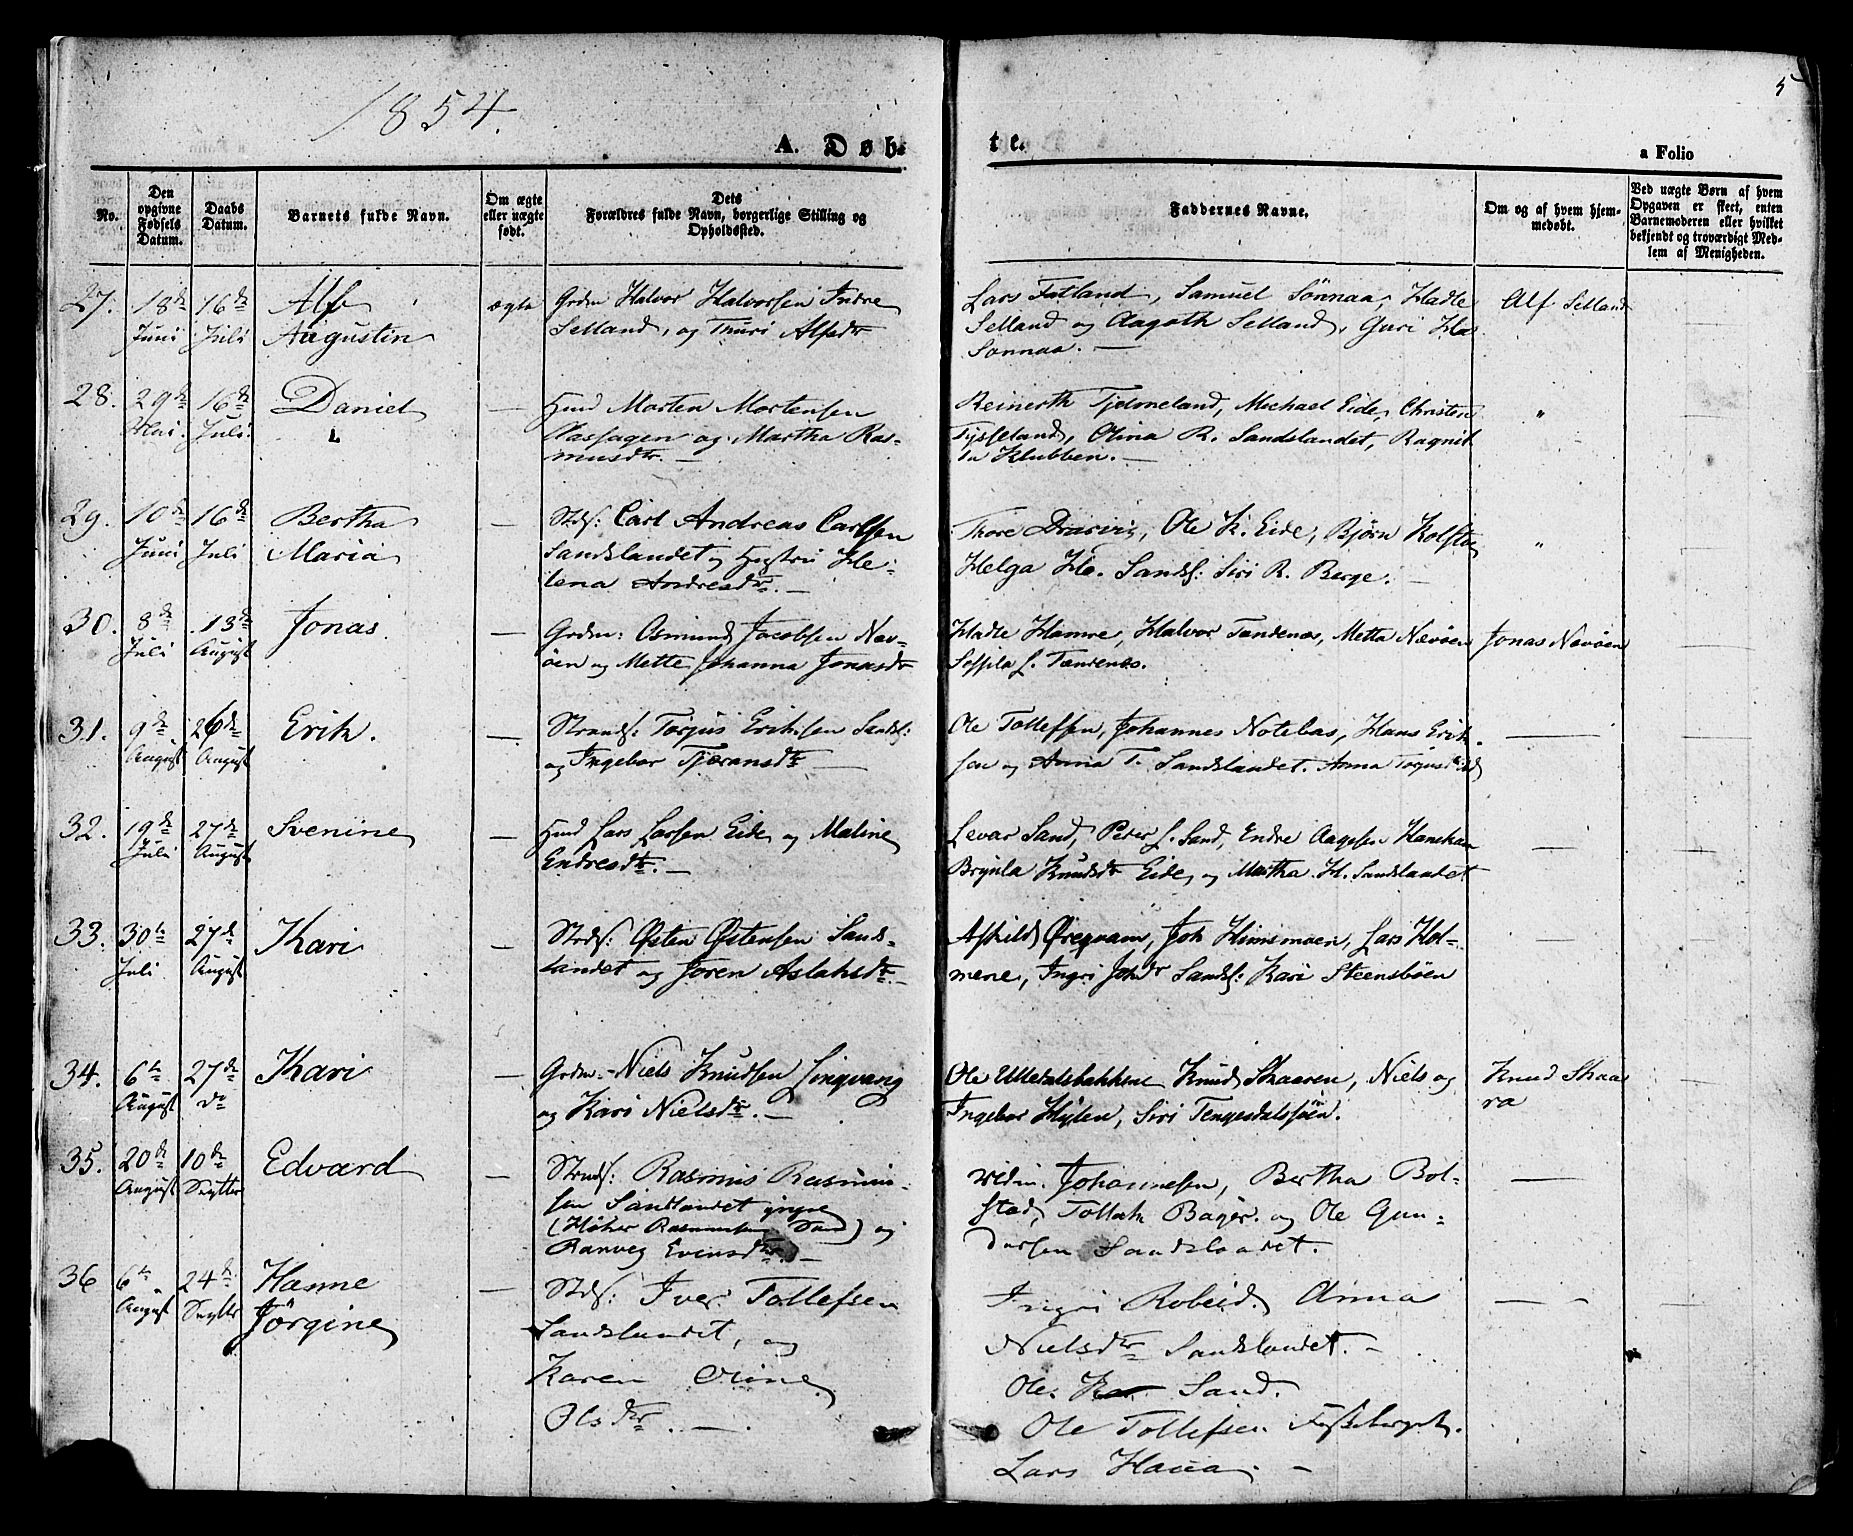 1854.
5
A. Døb-
te.
a Folio
No.
Den opgivne Fødsels Datum.
Daabs Datum.
Barnets fulde Navn.
Om ægte eller uægte født.
Dets Forældres fulde Navn, borgerlige Stilling og Opholdssted.
Faddernes Navne.
Om og af hvem hjemmedøbt.
Ved uægte Børn af hvem Opgaven er skeet, enten Barnemoderen eller hvilket bekjendt og troværdigt Medlem af Menigheden.
27. 18de Juni 16de Juli Alf Augustin ægte
Grdm Halvor Halvorsen Indre
Selland, og Thuri Alfsdr
Lars Fatland, Samuel Sönnaa, Hadle
Selland og Aagoth Selland, Guri
Sonnaa.—
Alf Selland
28. 29de Mai. 16de Juli. Daniel —
Hmd Morten Mortensen
og Martha Ras-
musdtr.—
Reinerth Tjelmeland, Michael Eide, Christen
Tysseland, Olina R. Sandslandet, Ragnil
Klubben.—
"
29. 10de Juni 16de Juli Bertha Maria —
Strds: Carl Andreas Carlsen
Sandslandet og Hustru He-
lena Andresdtr.—
Thore Drarvig, Ole K. Eide, Bjørn
Helga He. Sandsl: Siri R. Berge.—
"
30. 8de Juli 13de August Jonas. —
Grdm: Osmund Jacobsen Nav-
öen og Mette Johanna Jonasdtr
Hadle Hamre, Halvor Tandenes, Metta Navöen
L. Tandenes.
Jonas Navöen
31. 9de August 26de August Erik. —
Strands: Torjus Eriksen Sandsl:
og Ingebor Tjæransdtr —
Ole Tollefsen, Johannes Notebas, Hans Erik-
sen og Anna T. Sandslandet. Anna
—
32. 19de Juli 27de August Svenine —
Hmd Lars Larsen Eide og Maline
Endresdtr.—
Levar Sand, Peter L. Sand, Endre Aagesen
Brynla Knudsdr Eide, og Martha H. Sandslandet
—
33. 30te Juli 27de August Kari —
Strds: Østen Østensen Sands-
landet og Joren Aslaksdtr.—
Askild Øregvam, Joh Himsmoen, Lars Hol-
mene, Ingri Johdr Sandsl: Kari Steensböen
—
34. 6te August 27de do Kari —
Grdm. Niels Knudsen Lingvang
og Kari Nielsdtr.—
Ole Ulledalsbakkene Knud Skaaren, Niels og
Ingebor Hylen, Siri Tengesdalsföen.
Knud Skaa
ra
35. 20de August 10de Septbr Edvard —
Strds: Rasmus Rasmus-
sen Sandslandet yngre
( Rasmussen Sand) og
Ranveg Evensdtr.—
Johannesen, Bertha Bol-
stad, Tollak Bager. og Ole Gun-
dersen Sandslandet.
—
36 6te August 24de Septbr Hanne Jørgine —
Strds: Iver Tollefsen
Sandslandet, og
Karen Oline
Olsdtr.—
Ingri Anna
Nielsdtr Sandslandet.—
Ole Sand.
Ole Tollefsen
Lars Haua.—
— —